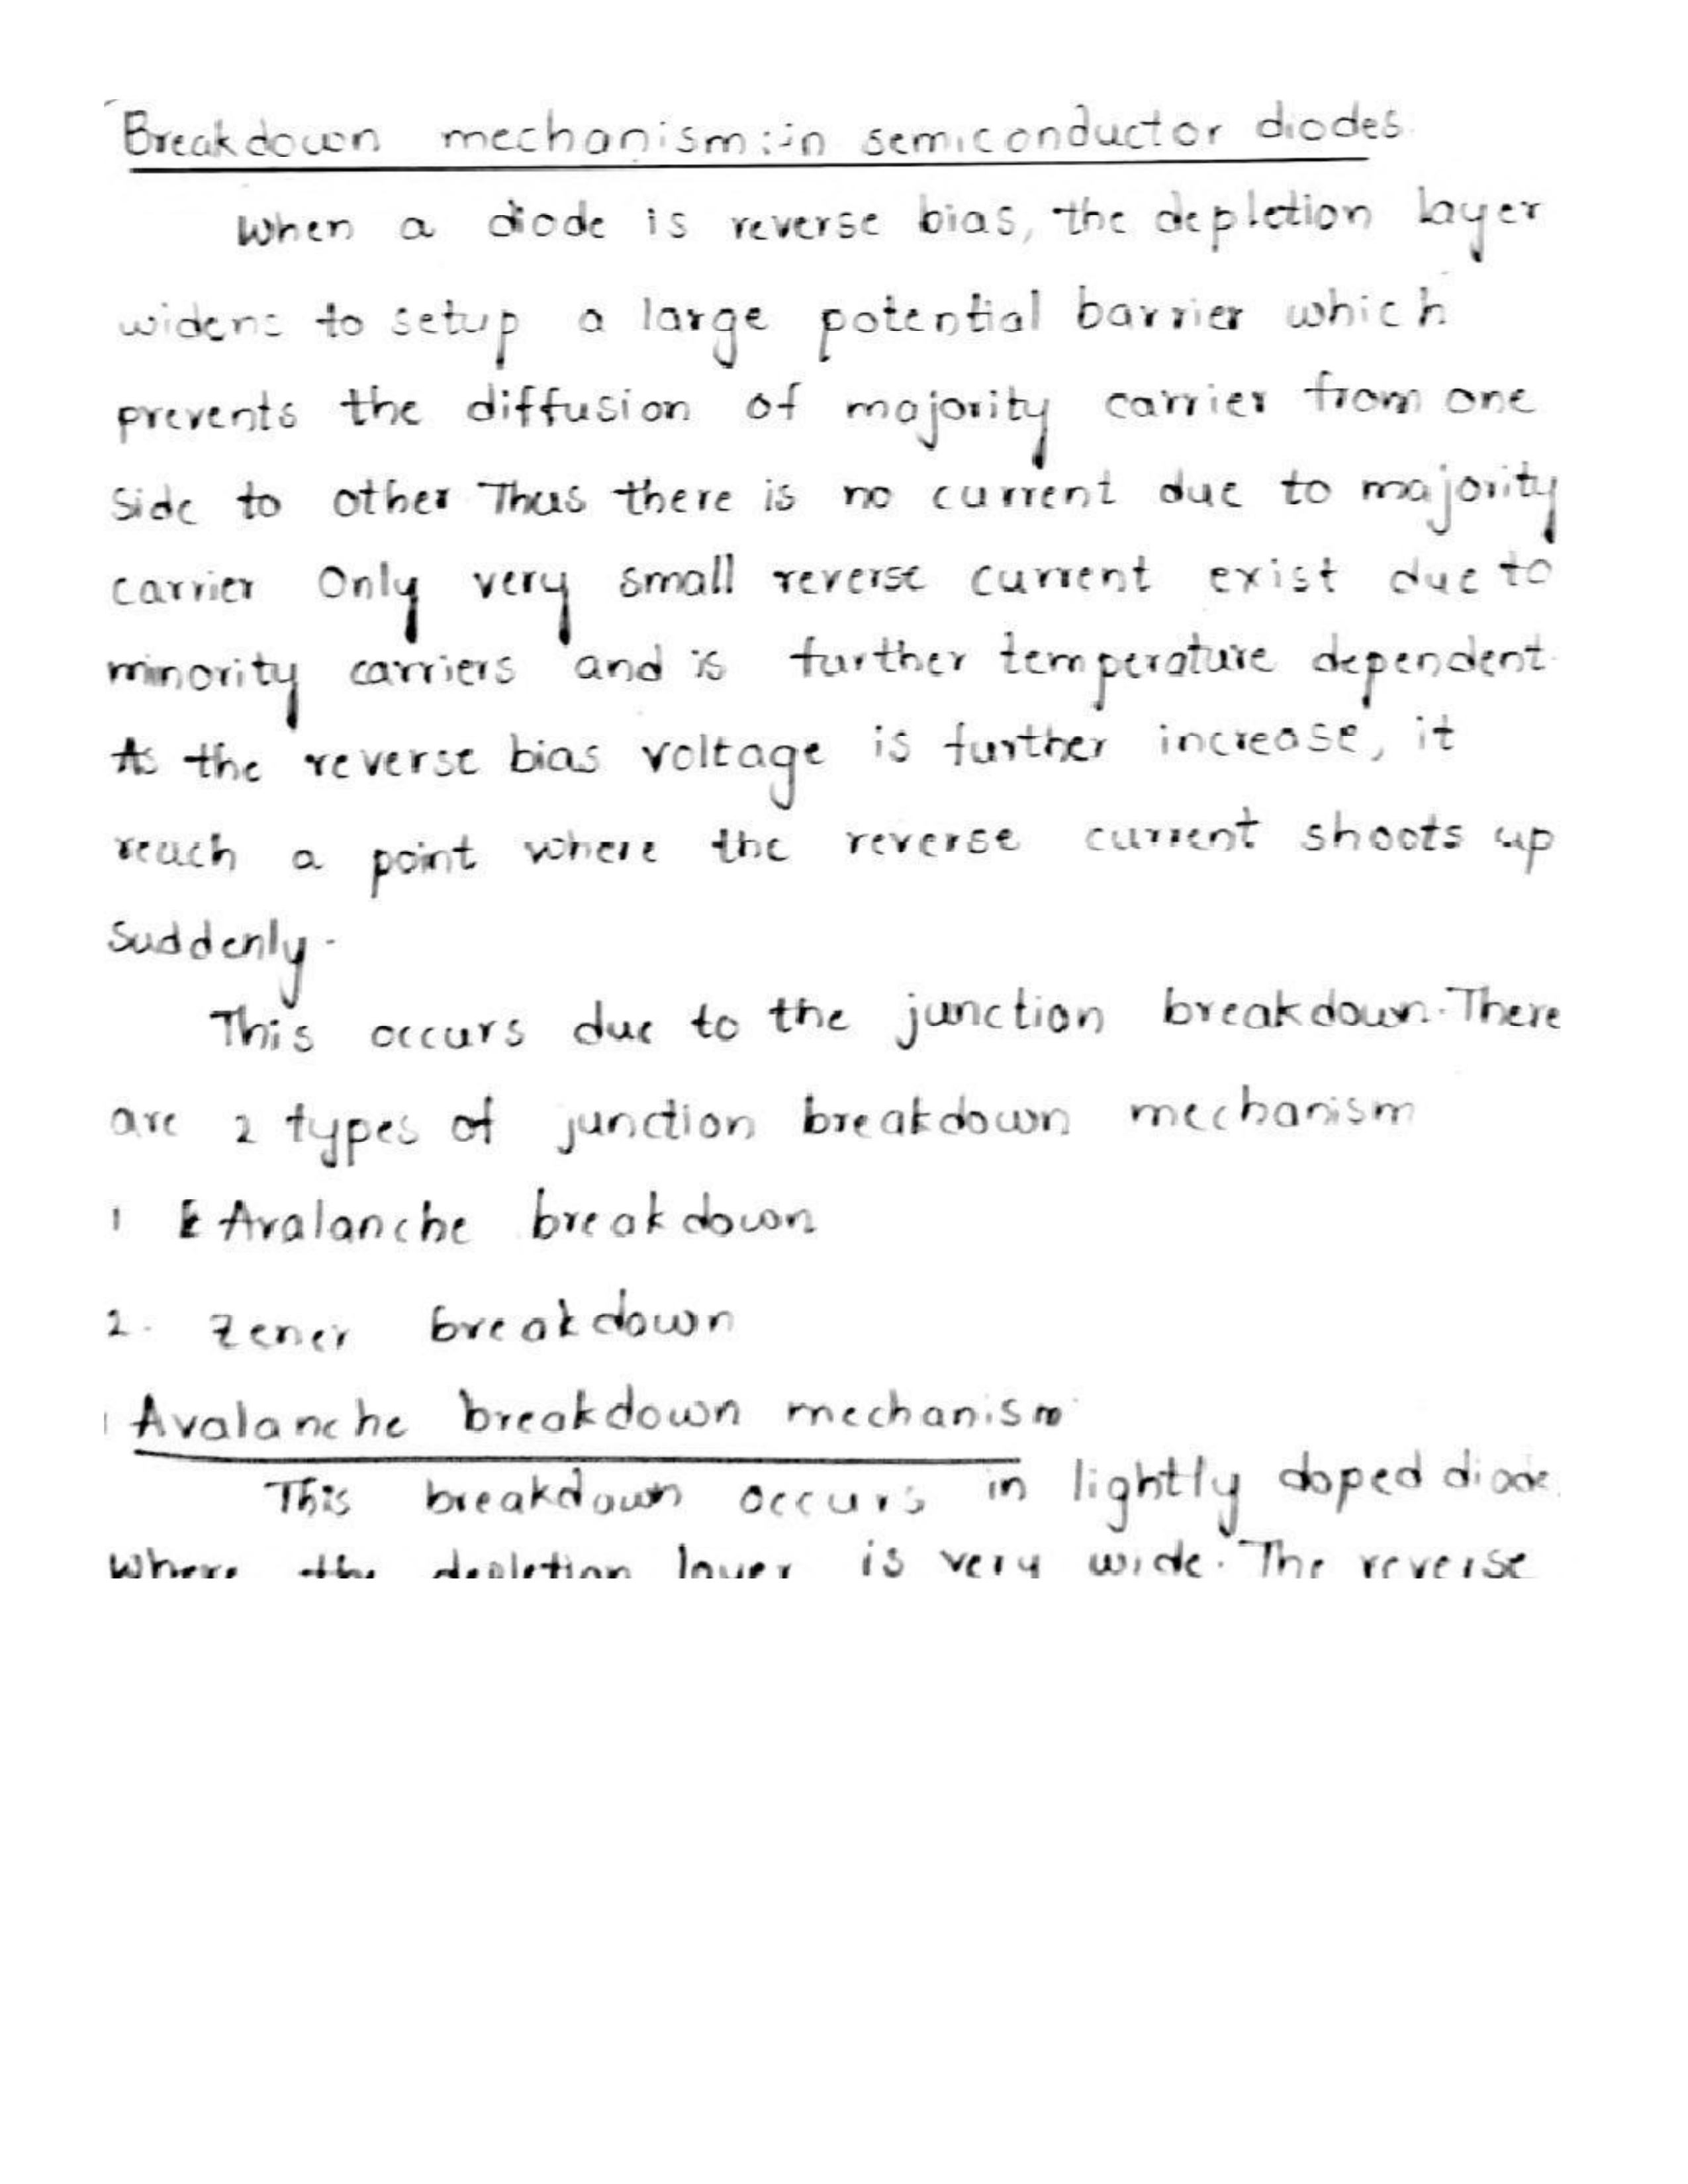 Breakdown mechanism:in semiconductor diodes.
When a diode is reverse bias, the depletion layer
widens to setup a large potential barrier which
prevents the diffusion of majority carrier from one
side to other Thus there is no current due to majority
carrier Only very small reverse current exist due to
minority carriers and is further temperature dependent.
As the reverse bias voltage is further increase, it
reach a point where the reverse current shoots up
suddenly.
This occurs due to the junction breakdown. There
are 2 types of junction breakdown mechanism
1 Avalanche breakdown
2. Zener breakdown
1 Avalanche breakdown mechanism
This breakdown occurs in lightly doped diode.
Where the depletion layer is very wide. The reverse